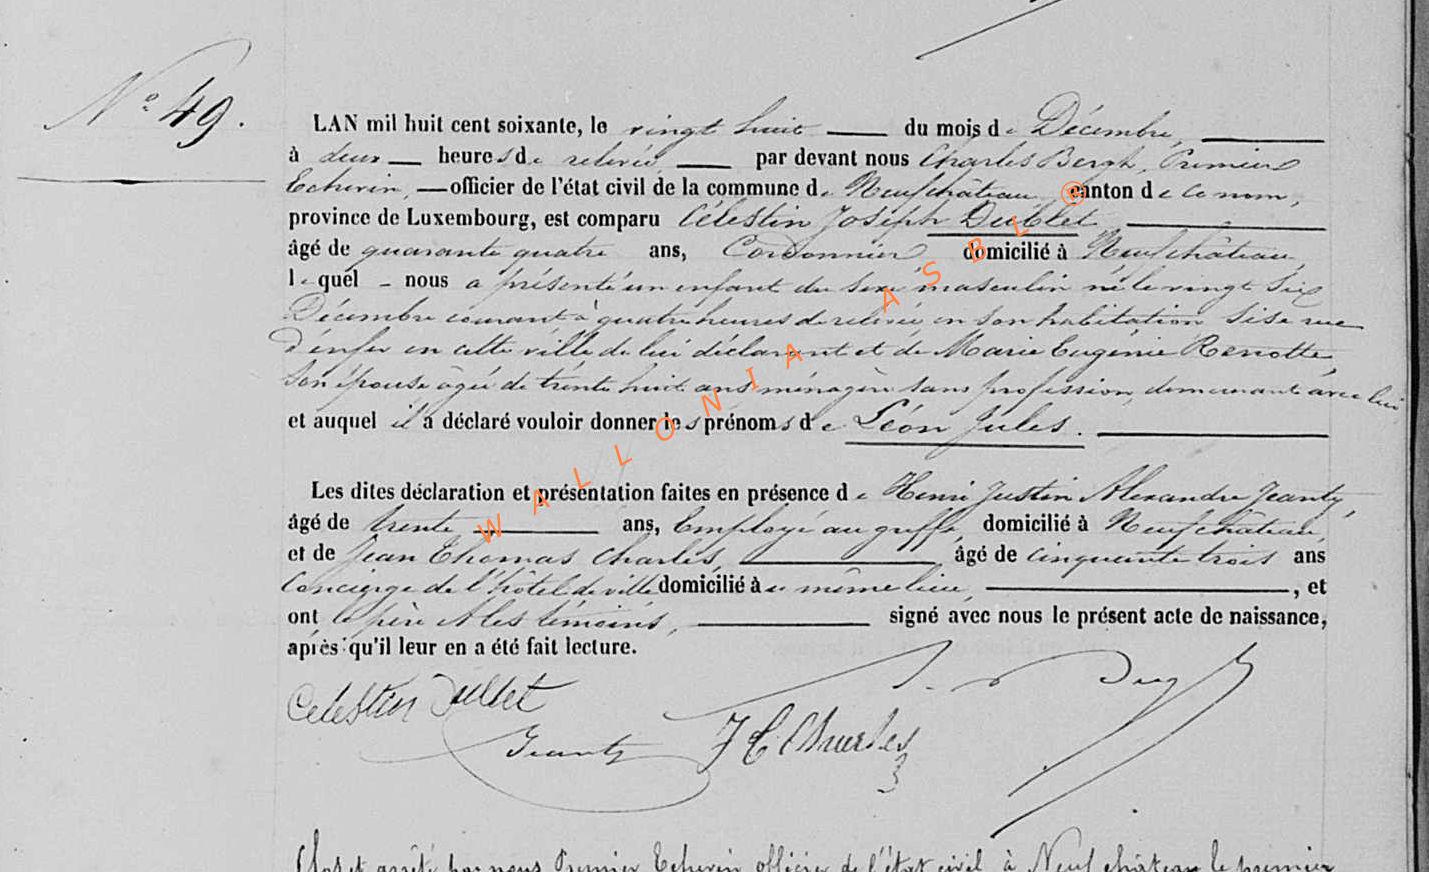 N° 49.
LAN mil huit cent soixante, le vingt huit du mois de Décembre,
à deux heures de relevée, par devant nous Charles Bergh, Premier
Echevin, officier de l'état civil de la commune de Neufchâteau canton de ce nom,
province de Luxembourg, est comparu Célestin Joseph Dublet
âgé de quarante quatre ans, Cordonnier domicilié à Neufchâteau,
lequel nous a présenté un enfant du sexe masculin né le vingt six
Décembre courant à quatre heures de relevée en son habitation sise rue
d'enfer en cette ville de lui déclarant et de Marie Eugénie Renotte,
son épouse âgée de trente huit ans ménagère sans profession, demeurant avec lui
et auquel il a déclaré vouloir donner les prénoms de Léon Jules.
Les dites déclaration et présentation faites en présence de Henri Justin Alexandre Jeanty,
âgé de trente ans, Employé au greffe, domicilié à Neufchâteau,
et de Jean Thomas Charles, âgé de cinquante trois ans
Concierge de l'hôtel de ville domicilié à même lieu, , et
ont le père & les témoins, signé avec nous le présent acte de naissance,
après qu'il leur en a été fait lecture.
Celestin Dublet
Jeanty J T Charles
Clos et arrêté par nous Premier Echevin officier de l'état civil à Neufchâteau le premier
WALLONIA ASBL ®